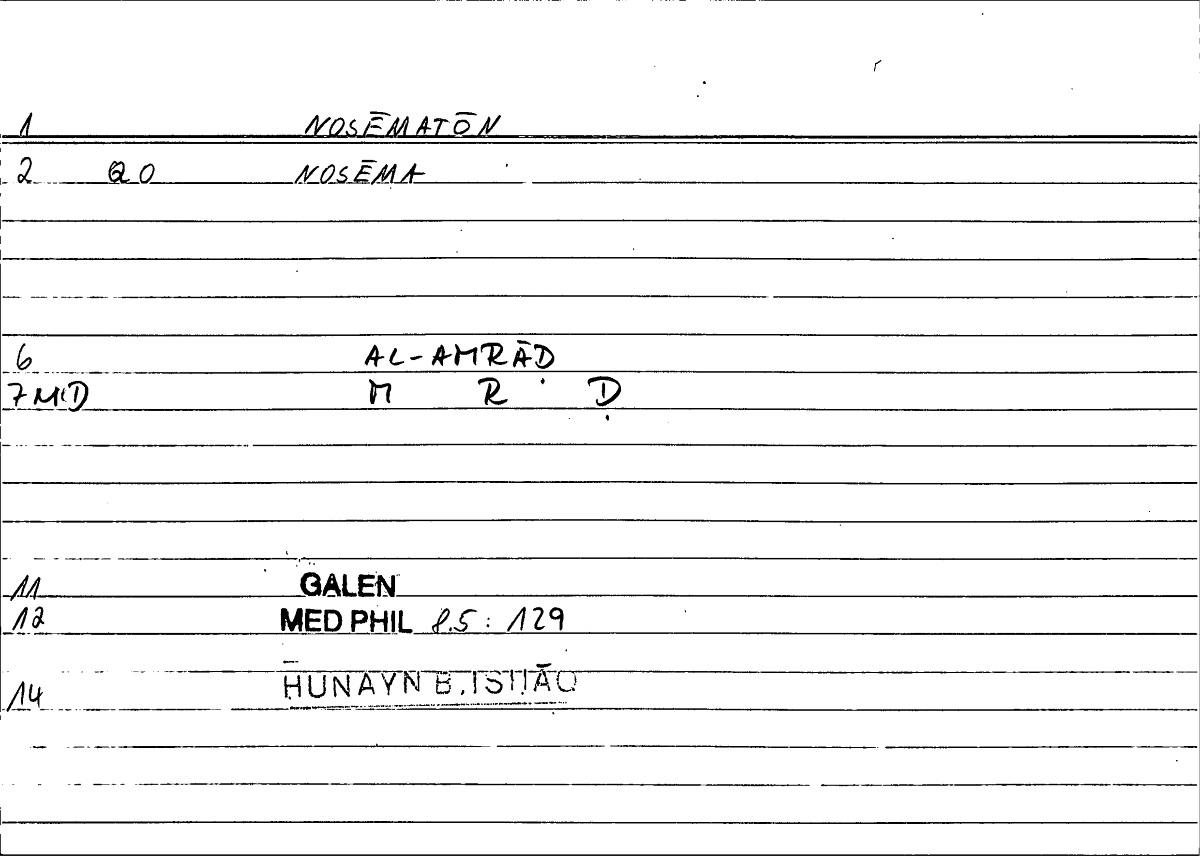 1 NOSĒMATŌN
2 QO NOSĒMA
6 AL-AMRĀD
7 MID M R Ḍ
11 GALEN
12 MED PHIL 8.5 : 129
14 ḤUNAYN B. ISḤĀQ